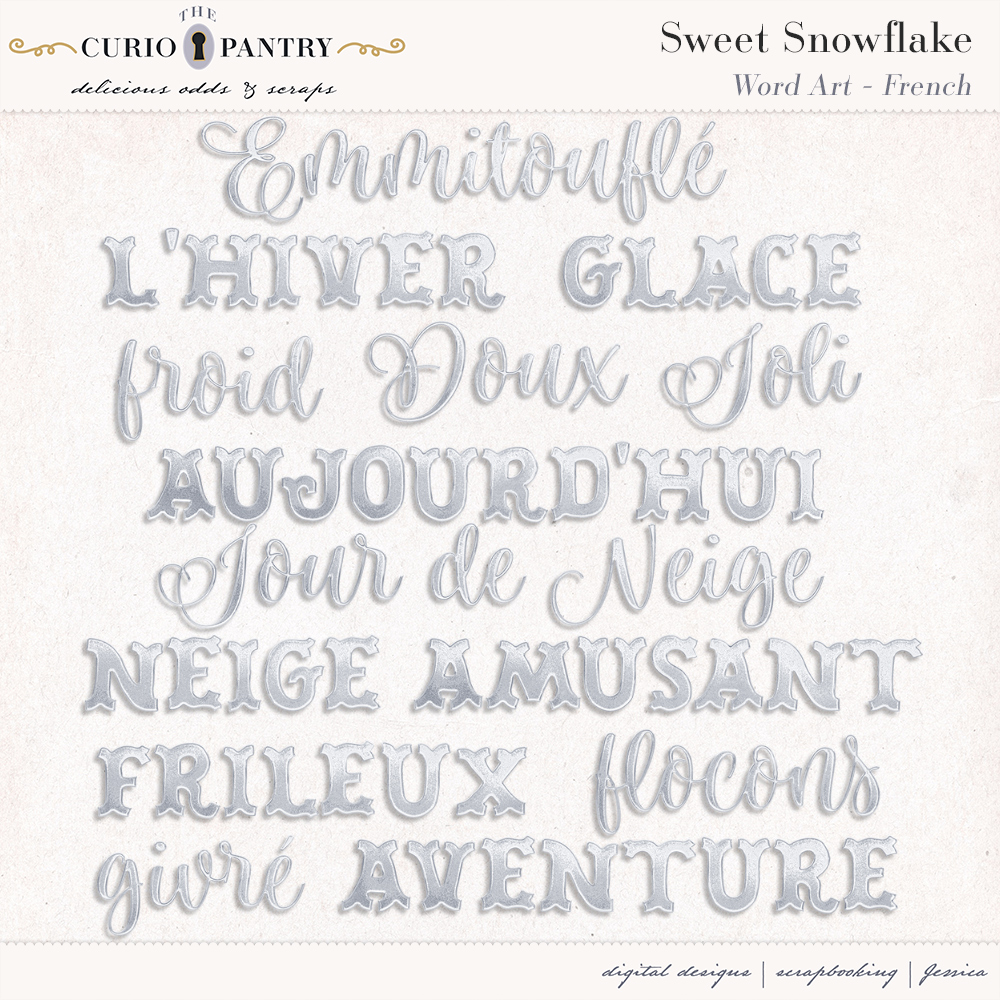 THE
CURIO PANTRY
delicious odds & scraps
Sweet Snowflake
Word Art - French
Emmitouflé
L'HIVER GLACE
froid Doux Joli
AUJOURD'HUI
Jour de Neige
NEIGE AMUSANT
FRILEUX flocons
givré AVENTURE
digital designs | scrapbooking | Jessica